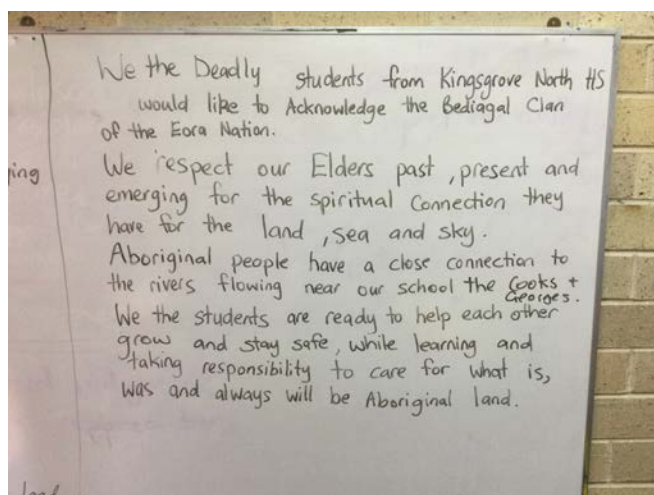 We the Deadly students from Kingsgrove North HS
would like to Acknowledge the Bediagal Clan
of the Eora Nation.
We respect our Elders past, present and
emerging for the spiritual connection they
have for the land, sea and sky.
Aboriginal people have a close connection to
the rivers flowing near our school the Cooks +
Georges.
We the students are ready to help each other
grow and stay safe, while learning and
taking responsibility to care for what is,
was and always will be Aboriginal land.
ing